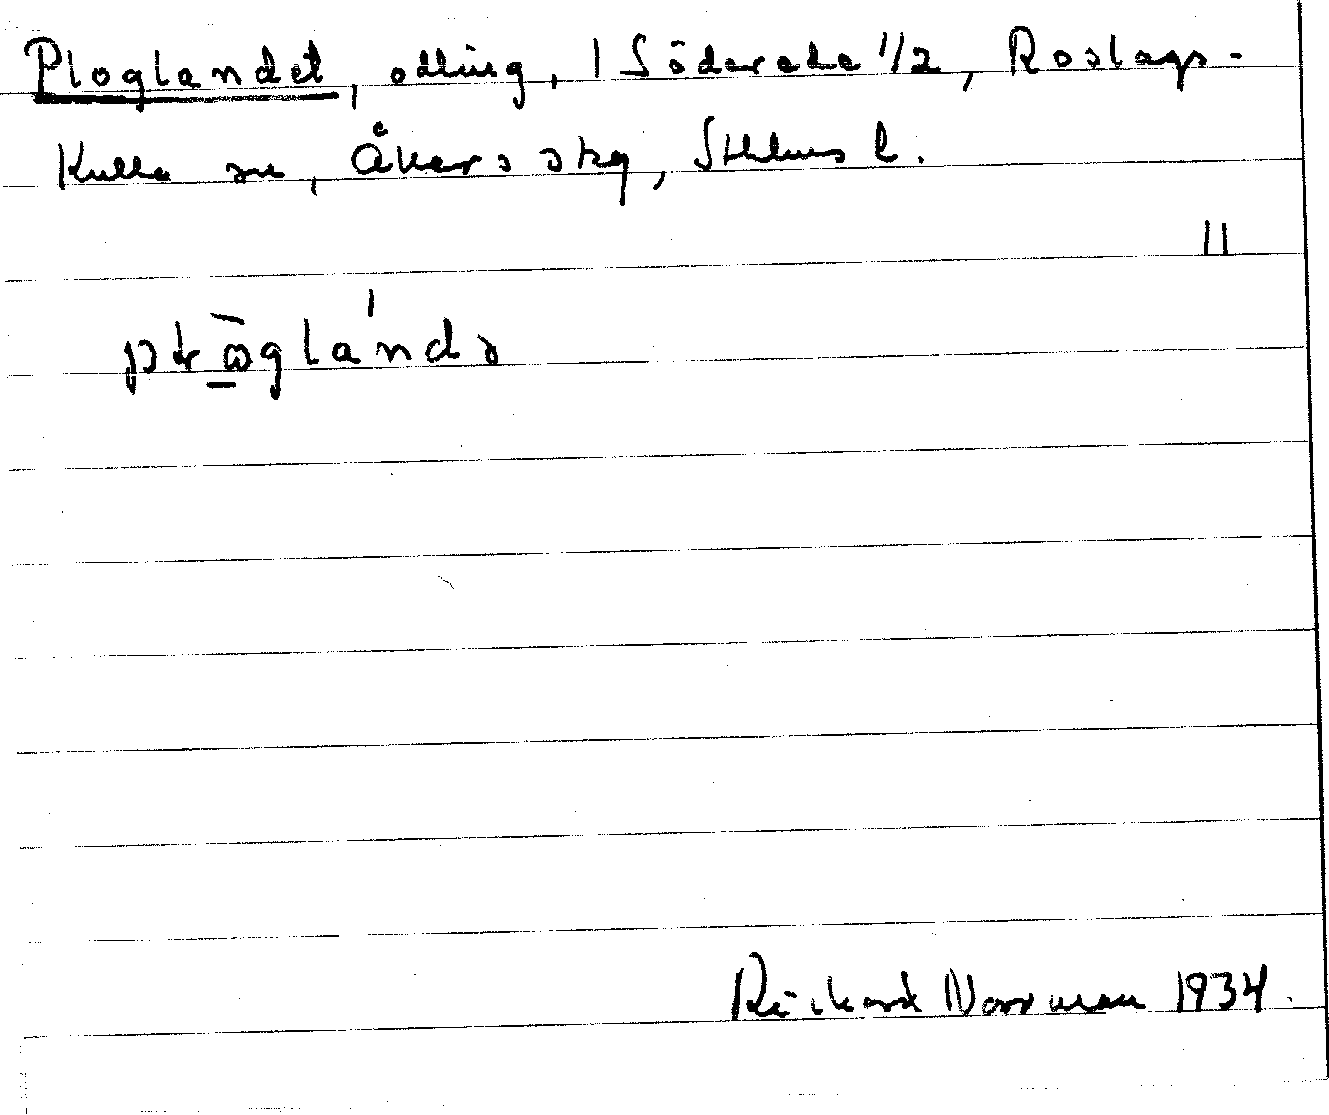 Ploglandet, odling, 1 Söderede 1/2, Roslags-
Kulla sn, Åkers skg, Sthlms l.
11
Rickard Norrman 1934.